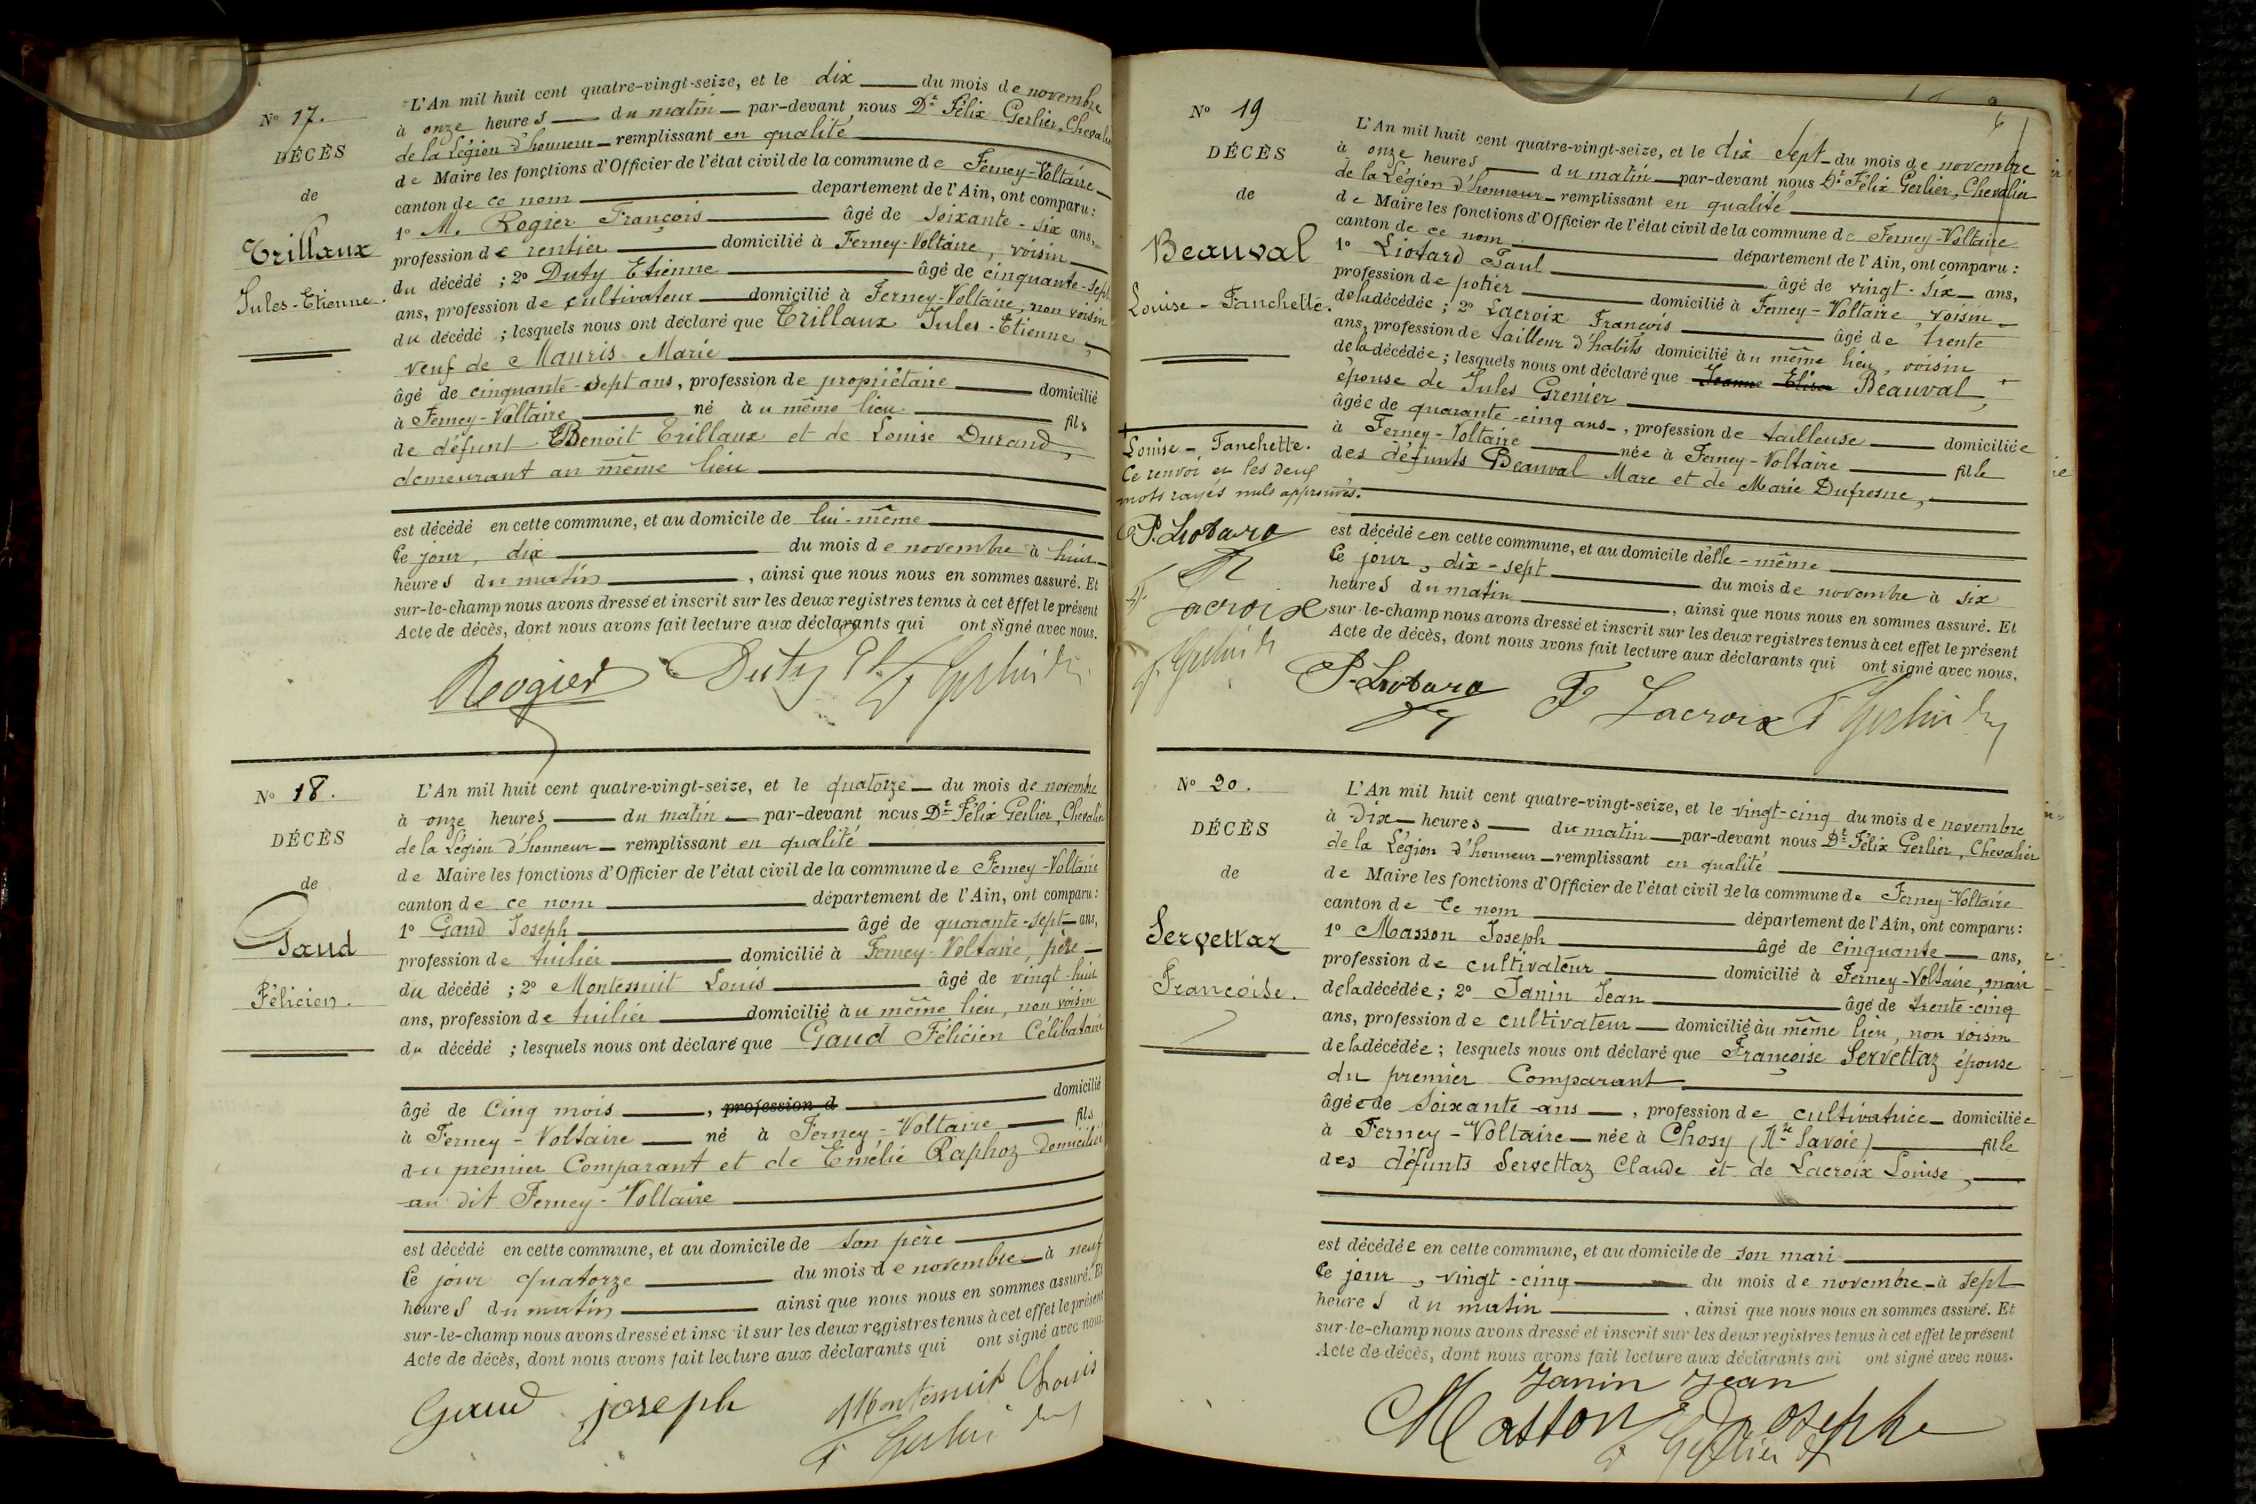 N° 17.
DÉCÈS
de
Trillaux
Jules-Etienne.
L'An mil huit cent quatre-vingt-seize, et le dix du mois de novembre
à onze heures du matin par-devant nous Dr Félix Gerlier, Chevalier
de la Légion d'honneur remplissant en qualité
de Maire les fonctions d'Officier de l'état civil de la commune de Ferney-Voltaire
canton de ce nom département de l'Ain, ont comparu :
1° M. Rogier François âgé de soixante-six ans,
profession de rentier domicilié à Ferney-Voltaire, voisin
du décédé ; 2° Duty Etienne âgé de cinquante-sept
ans, profession de cultivateur domicilié à Ferney-Voltaire, non voisin
du décédé ; lesquels nous ont déclaré que Trillaux Jules-Etienne,
veuf de Mauris Marie
âgé de cinquante-sept ans, profession de propriétaire domicilié
à Ferney-Voltaire né au même lieu fils
de défunt Benoit Trillaux et de Louise Durand,
demeurant au même lieu
est décédé en cette commune, et au domicile de lui-même
Ce jour, dix du mois de novembre à huit
heures du matin, ainsi que nous nous en sommes assuré. Et
sur-le-champ nous avons dressé et inscrit sur les deux registres tenus à cet effet le présent
Acte de décès, dont nous avons fait lecture aux déclarants qui ont signé avec nous.
Roogier Duty F Gerlier Dr
N° 18.
DÉCÈS
de
Gaud
Félicien.
L'An mil huit cent quatre-vingt-seize, et le quatorze du mois de novembre
à onze heures du matin par-devant nous Dr Félix Gerlier, Chevalier
de la Légion d'honneur remplissant en qualité
de Maire les fonctions d'Officier de l'état civil de la commune de Ferney-Voltaire
canton de ce nom département de l'Ain, ont comparu :
1° Gaud Joseph âgé de quarante-sept ans,
profession de tuilier domicilié à Ferney-Voltaire, père
du décédé ; 2° Montessuit Louis âgé de vingt-huit
ans, profession de tuilier domicilié au même lieu, non voisin
du décédé ; lesquels nous ont déclaré que Gaud Félicien Célibataire
âgé de Cinq mois, profession d domicilié
à Ferney-Voltaire né à Ferney-Voltaire fils
du premier Comparant et de Emélie Raphoz domiciliée
au dit Ferney-Voltaire
est décédé en cette commune, et au domicile de son père
Ce jour quatorze du mois de novembre à neuf
heures du matin ainsi que nous nous en sommes assuré. Et
sur-le-champ nous avons dressé et inscrit sur les deux registres tenus à cet effet le présent
Acte de décès, dont nous avons fait lecture aux déclarants qui ont signé avec nous.
Gaud joseph Montessuit Louis
F Gerlier Dr
N° 19
DÉCÈS
de
Beauval
Louise-Fanchette.
L'An mil huit cent quatre-vingt-seize, et le dix sept du mois de novembre
à onze heures du matin par-devant nous Dr Félix Gerlier, Chevalier
de la Légion d'honneur remplissant en qualité
de Maire les fonctions d'Officier de l'état civil de la commune de Ferney-Voltaire
canton de ce nom département de l'Ain, ont comparu :
1° Liotard Paul âgé de vingt-six ans,
profession de potier domicilié à Ferney-Voltaire, voisin
de la décédée ; 2° Lacroix François âgé de trente
ans, profession de tailleur d'habits domicilié au même lieu, voisin
de la décédée ; lesquels nous ont déclaré que Jeanne Elisa Beauval,
épouse de Jules Grenier
âgée de quarante-cinq ans, profession de tailleuse domiciliée
à Ferney-Voltaire née à Ferney-Voltaire fille
des défunts Beauval Marc et de Marie Dufresne,
Louise-Fanchette.
Ce renvoi et les deux
mots rayés nuls approuvés.
P. Liotard
F. Lacroix
F. Gerlier Dr
est décédée en cette commune, et au domicile d'elle-même
Ce jour, dix-sept du mois de novembre à six
heures du matin, ainsi que nous nous en sommes assuré. Et
sur-le-champ nous avons dressé et inscrit sur les deux registres tenus à cet effet le présent
Acte de décès, dont nous avons fait lecture aux déclarants qui ont signé avec nous.
P. Liotard F Lacroix F Gerlier Dr
N° 20.
DÉCÈS
de
Servettaz
Françoise.
L'An mil huit cent quatre-vingt-seize, et le vingt-cinq du mois de novembre
à dix heures du matin par-devant nous Dr Félix Gerlier, Chevalier
de la Légion d'honneur remplissant en qualité
de Maire les fonctions d'Officier de l'état civil de la commune de Ferney-Voltaire
canton de Ce nom département de l'Ain, ont comparu :
1° Masson Joseph âgé de cinquante ans,
profession de cultivateur domicilié à Ferney-Voltaire, mari
de la décédée ; 2° Janin Jean âgé de trente-cinq
ans, profession de cultivateur domicilié au même lieu, non voisin
de la décédée ; lesquels nous ont déclaré que Françoise Servettaz épouse
du premier Comparant
âgée de Soixante ans, profession de cultivatrice domiciliée
à Ferney-Voltaire née à Chosy (Hte Savoie) fille
des défunts Servettaz Claude et de Lacroix Louise,
est décédée en cette commune, et au domicile de son mari
Ce jour, vingt-cinq du mois de novembre à sept
heures du matin, ainsi que nous nous en sommes assuré. Et
sur-le-champ nous avons dressé et inscrit sur les deux registres tenus à cet effet le présent
Acte de décès, dont nous avons fait lecture aux déclarants qui ont signé avec nous.
Janin Jean
Masson Josephe
F Gerlier Dr